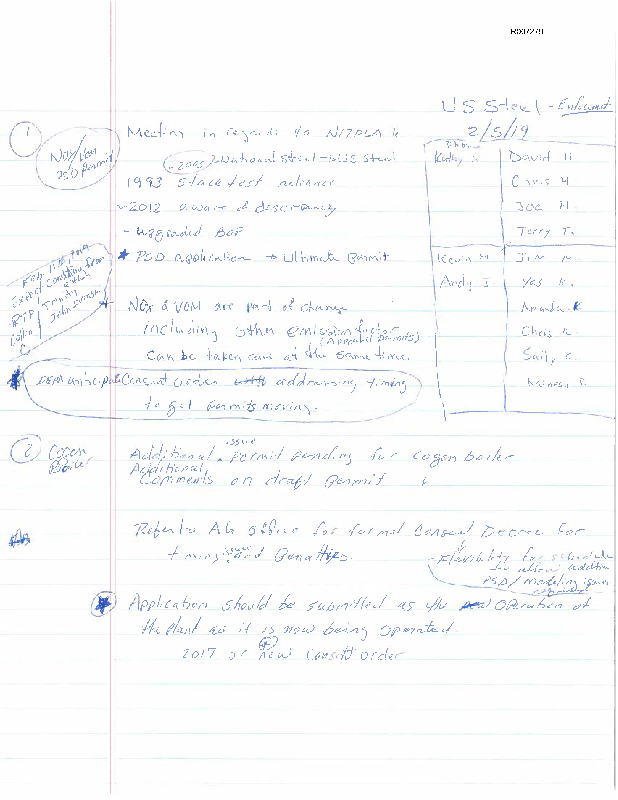 R007279
US Steel - Enforcement
2/5/19
1
NOx/VOM
PSD Permit
Meeting in regards to
2005 National Steel - US Steel
1993 Stack test reliance
- 2012 aware of discrepancy
- upgraded BOF
* PSD application → Ultimate Permit
Phone
Kathy
David H
Chris H
Joe H.
Terry T.
Kevin M
Andy J.
Jim M.
Yas K.
Amanda K
Chris R.
Sally C.
Expect Condition from
Trinity
NOx & VOM are part of change
including other emission factor
(Appealed permits)
Can be taken care at the same time.
Consent order addressing timing
to get permits moving.
2
Cogen
Boiler
Additional Permit pending for cogen boiler
issue
Additional
Comments on draft permit
Refer to AG office for formal Consent Decree for
timing issue and Penalties.
- Flexibility for schedule
to allow addition
PSD/modeling issues
Application should be submitted as the operation of
the Plant as it is now being operated.
2017 or new Consent order